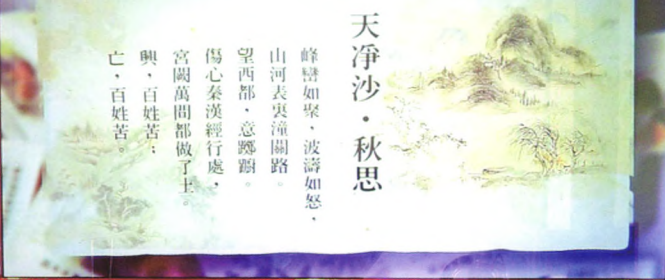 天凈沙·秋思
峰巒如聚，波濤如怒，
山河表裏潼關路。
望西都，意躑躕。
傷心秦漢經行處，
宮闕萬間都做了土。
興，百姓苦；
亡，百姓苦。